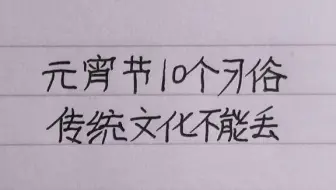 元宵节10个习俗
传统文化不能丢